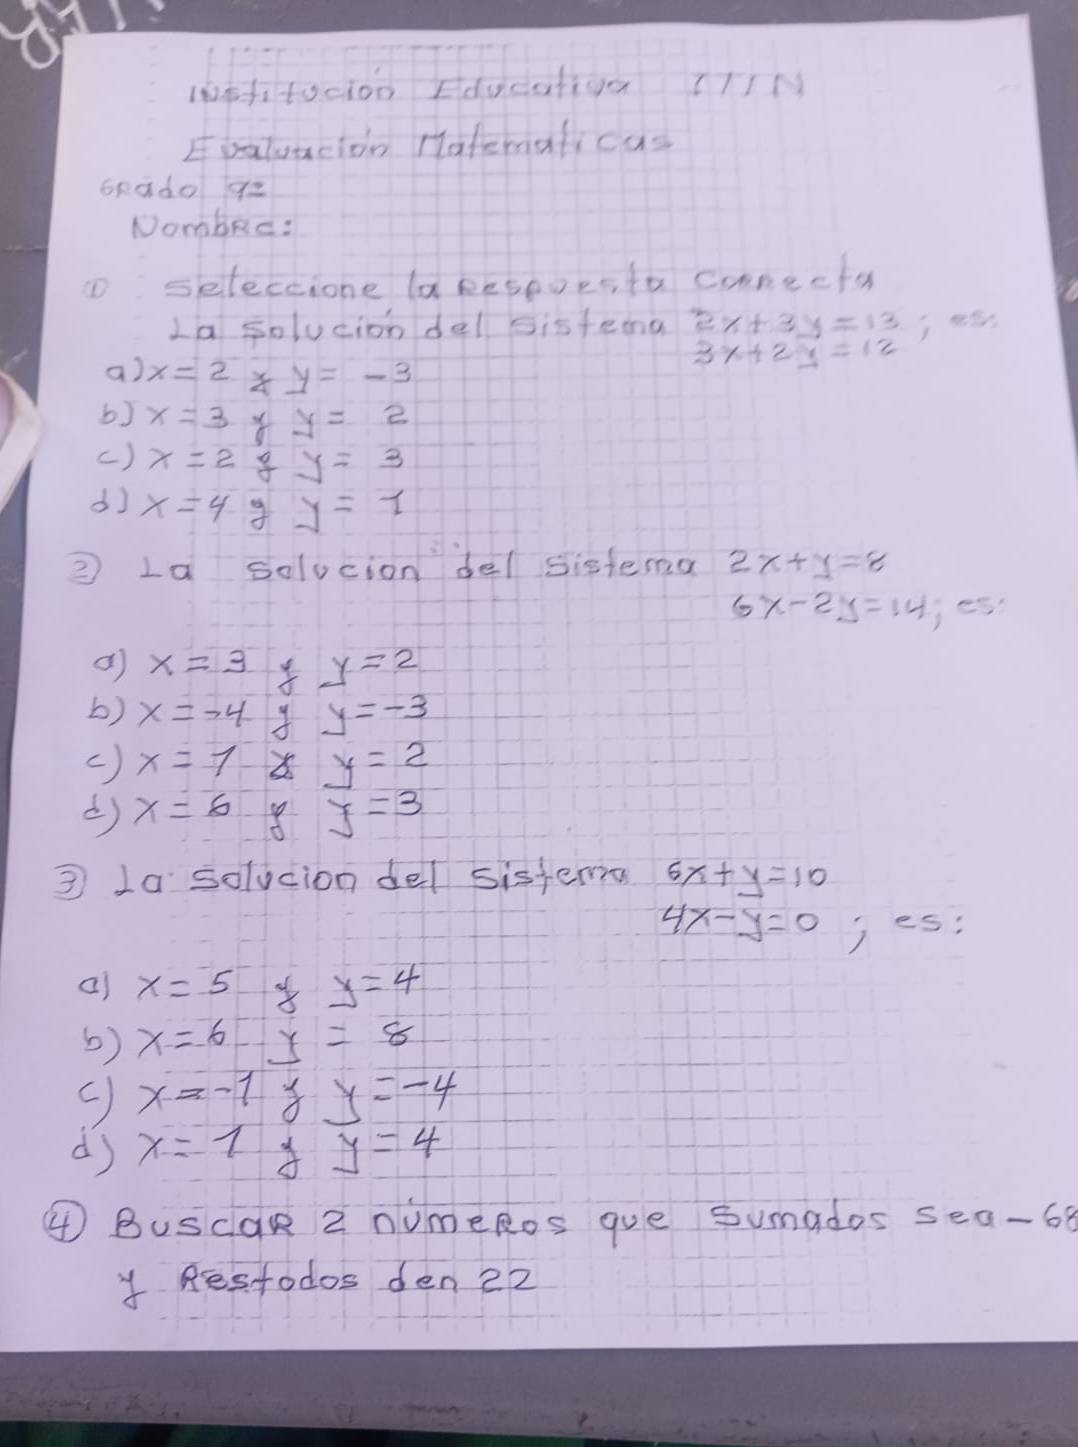 Institución Educativa ITIN
Evaluación Matematicas
Grado 9º
Nombre:
① Seleccione la Respuesta correcta
La solución del sistema 2x+3y=13; es:
3x+2y=12
a) x=2 y y=-3
b) x=3 y y=2
c) x=2 y y=3
d) x=4 y y=1
② La solucion del sistema 2x+y=8
6x-2y=14; es:
a) x=3 y y=2
b) x=-4 y y=-3
c) x=7 y y=2
d) x=6 y y=3
③ La solucion del sistema 6x+y=10
4x-y=0; es:
a) x=5 y y=4
b) x=6 y=8
c) x=-1 y y=-4
d) x=1 y y=4
④ Buscar 2 números que sumados sea -68
y Restodos den 22